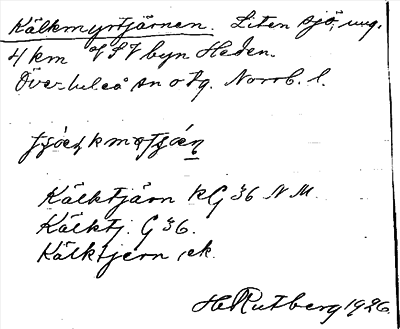 Kälkmyrtjärnen. Liten sjö, ung.
4 km VSV byn Heden.
Överluleå sn o tg. Norrb. l.
Kälktjärn KG 36 N M.
Kälktj. G 36.
Kälktjern ek.
H Rutberg 1926.